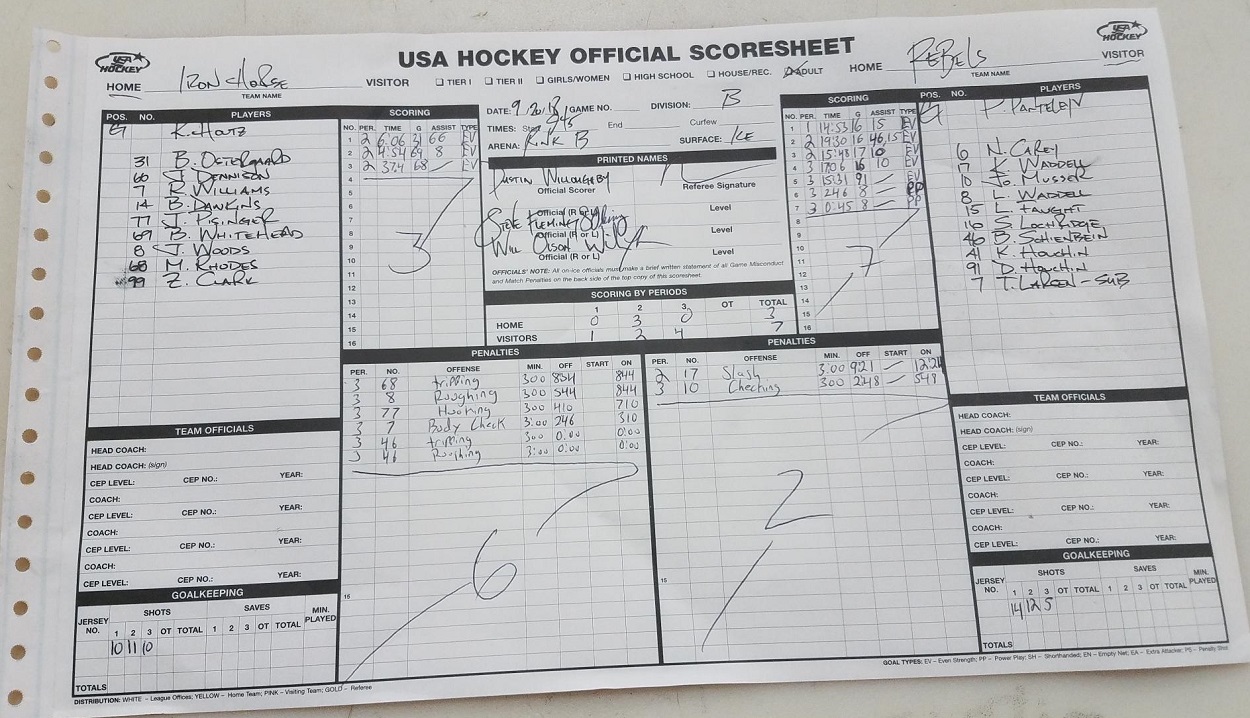 USA HOCKEY OFFICIAL SCORESHEET
USA HOCKEY
USA HOCKEY
HOME IRON HORSE VISITOR
TEAM NAME
☐ TIER I ☐ TIER II ☐ GIRLS/WOMEN ☐ HIGH SCHOOL ☐ HOUSE/REC. ☒ ADULT
HOME REBELS VISITOR
TEAM NAME
POS. NO. PLAYERS
G K. Hotz
31 B. OSTERGAARD
66 J. DENNISON
7 R. WILLIAMS
14 B. DAWKINS
77 J. PISINGER
69 B. WHITEHEAD
8 J. WOODS
68 M. RHODES
99 Z. CLARK
SCORING
NO. PER. TIME G ASSIST TYPE
1 2 6:06 31 66 EV
2 2 4:54 69 8 EV
3 2 37.4 68 — EV
4
5
6
7
8
9
10
11
12
13
14
15
16
3
DATE: 9/20/18 GAME NO. DIVISION: B
TIMES: Start 945 End Curfew
ARENA: RINK B SURFACE: ICE
PRINTED NAMES
AUSTIN WILLOUGHBY
Official Scorer Referee Signature
Official (R or L) Level
STEVE FLEMING
Official (R or L) Level
WILL OLSON
Official (R or L) Level
OFFICIALS' NOTE: All on-ice officials must make a brief written statement of all Game Misconduct
and Match Penalties on the back side of the top copy of this scoresheet.
SCORING BY PERIODS
1 2 3 OT TOTAL
HOME 0 3 0 3
VISITORS 1 2 4 7
SCORING
NO. PER. TIME G ASSIST TYPE
1 1 14:53 16 15 EV
2 2 19:30 16 46,15 EV
3 2 15:48 17 10 EV
4 3 17:06 16 10 EV
5 3 15:31 91 — EV
6 3 2:46 8 — PP
7 3 0:45 8 — PP
8
9
10
11
12
13
14
15
16
7
POS. NO. PLAYERS
G P. PANTELEN
6 N. CAREY
17 K. WADDELL
10 Jo. MUSSER
8 L. WADDELL
15 L. TAUGHT
16 S. LOCHRIDGE
46 B. SCHIENBEIN
41 K. HOUCHIN
91 D. HOUCHIN
7 T. LARSEN - SUB
PENALTIES
PER. NO. OFFENSE MIN. OFF START ON
3 68 tripping 3:00 854 844
3 8 Roughing 3:00 544 844
3 77 Hooking 3:00 410 710
3 7 Body Check 3:00 246 310
3 46 tripping 3:00 0:00 0:00
3 46 Roughing 3:00 0:00 0:00
6
15
PENALTIES
PER. NO. OFFENSE MIN. OFF START ON
2 17 Slash 3:00 9:21 — 12:21
3 10 Checking 3:00 2:48 — 548
2
15
TEAM OFFICIALS
HEAD COACH:
HEAD COACH: (sign)
CEP LEVEL: CEP NO.: YEAR:
COACH:
CEP LEVEL: CEP NO.: YEAR:
COACH:
CEP LEVEL: CEP NO.: YEAR:
COACH:
CEP LEVEL: CEP NO.: YEAR:
GOALKEEPING
JERSEY NO. SHOTS SAVES MIN. PLAYED
1 2 3 OT TOTAL 1 2 3 OT TOTAL
10 11 10
TOTALS
TEAM OFFICIALS
HEAD COACH:
HEAD COACH: (sign)
CEP LEVEL: CEP NO.: YEAR:
COACH:
CEP LEVEL: CEP NO.: YEAR:
COACH:
CEP LEVEL: CEP NO.: YEAR:
COACH:
CEP LEVEL: CEP NO.: YEAR:
GOALKEEPING
JERSEY NO. SHOTS SAVES MIN. PLAYED
1 2 3 OT TOTAL 1 2 3 OT TOTAL
14 12 5
TOTALS
DISTRIBUTION: WHITE – League Offices; YELLOW – Home Team; PINK – Visiting Team; GOLD – Referee
GOAL TYPES: EV – Even Strength; PP – Power Play; SH – Shorthanded; EN – Empty Net; EA – Extra Attacker; PS – Penalty Shot